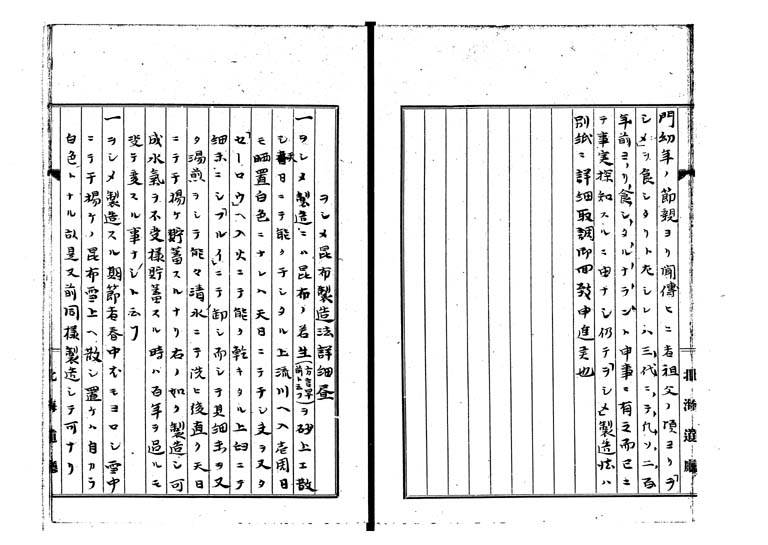 門幼年ノ節親ヨリ聞傳ヒニ者祖父ノ頃ヨリヲ
シメヲ食シタリト左シレハ三代ニシテ凡ソ二百
年前ヨリ食シタルナラント申事ニ有之而已ニ
テ事実探知スルニ由ナシ仍テヲシメ製造法ハ
別紙ニ詳細取調御回致申進候也
北海道廳
ヲシメ昆布製造法詳細書
一ヲシメ製造ニハ昆布ノ若生(方言早
ヲ砂上エ散
シ晝日ニテ能クテシタル上流川ヘ入
日
モ晒置白色ニナレハ天日ニテテシ
又タ
セーロウヘ入火ニテ能ク乾キタル上臼ニテ
細末ニシフルイニテ卸シ而シテ其細末ヲ又
タ湯煎ヲシテ能々清水ニテ洗ヒ後直ク天日
ニテテ揚ケ貯蓄スルナリ右ノ如ク製造シ可
成水氣ヲ不受様貯蓄スル時ハ百年ヲ過ルモ
変スル事ナシト云フ
一ヲシメ製造スル期節者春中
モヨロシ雪中
ニテテ揚ケノ昆布雪上ヘ散シ置ケハ自カラ
白色トナル故是又前同様製造シテ可ナリ
北海道廳